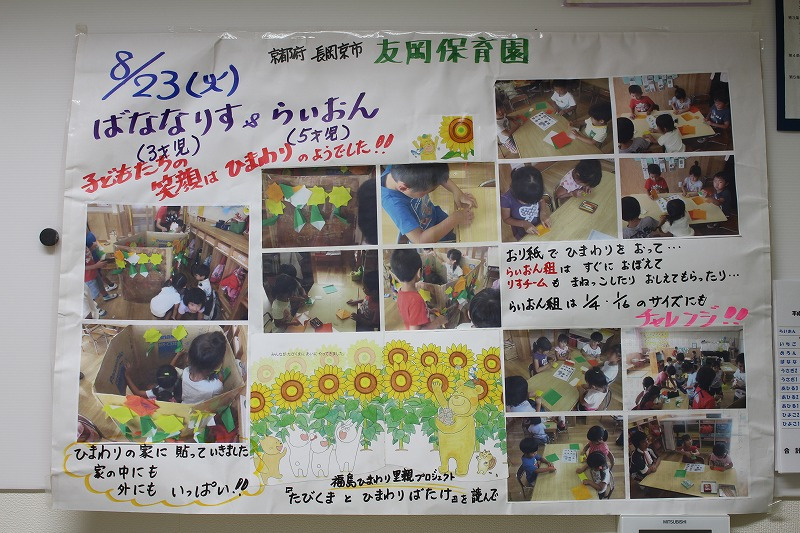 京都府 長岡京市 友岡保育園
8/23(火)
ばななりす & らいおん
(3才児) (5才児)
子どもたちの
笑顔は ひまわりのようでした!!
おり紙で ひまわりを おって…
らいおん組は すぐに おぼえて
りすチームも まねっこしたり おしえてもらったり…
らいおん組は 1/4・1/16 のサイズにも
チャレンジ!!
みんなが たびくまに あいに やってきました。
ひまわりの家に 貼っていきました
家の中にも
外にも いっぱい!!
福島ひまわり里親プロジェクト
『たびくまと ひまわりばたけ』を読んで
MITSUBISHI